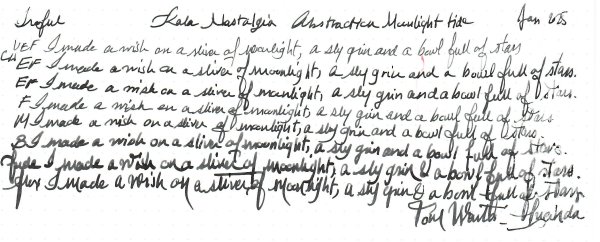 Kala Nostalgia Abstraction Moonlight tide Jan
UEF I made a wish on a sliver of moonlight, a sly grin and a bowl full of stars
EF I made a wish on a sliver of moonlight, a sly grin and a bowl full of stars.
EF I made a wish on a sliver of moonlight, a sly grin and a bowl full of stars.
F I made a wish on a sliver of moonlight, a sly grin and a bowl full of stars
M I made a wish on a sliver of moonlight, a sly grin and a bowl full of stars.
B I made a wish on a sliver of moonlight, a sly grin and a bowl full of stars.
I made a wish on a sliver of moonlight, a sly grin & a bowl full of stars.
I made a wish on a sliver of moonlight, a sly grin & a bowl full of stars
Tom Waits - Lucinda